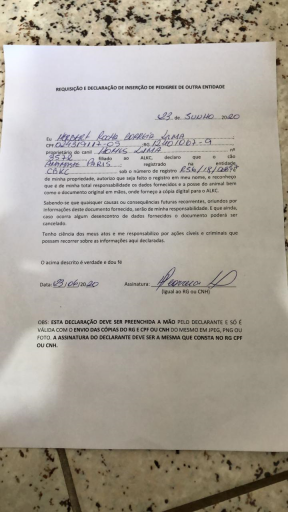 REQUISIÇÃO E DECLARAÇÃO DE INSERÇÃO DE PEDIGREE DE OUTRA ENTIDADE
23 de JUNHO 2020
Eu HERBERT ROCHA LIMA
CPF RG
proprietário do canil LIMA nº
3572 filiado ao ALKC, declaro que o cão
PARIS registrado na entidade
CBKC sob o número de registro
de minha propriedade, autorizo que seja feito o registro em meu nome, e reconheço
que é de minha total responsabilidade os dados fornecidos e a posse do animal bem
como o documento original em mãos, onde forneço a cópia digital para o ALKC.
Sabendo-se que quaisquer causas ou consequências futuras recorrentes, oriundos por
informações deste documento fornecido, serão de minha responsabilidade. E que ainda,
caso ocorra algum desencontro de dados fornecidos o documento poderá ser
cancelado.
Tenho ciência dos meus atos e me responsabilizo por ações cíveis e criminais que
possam recorrer sobre as informações aqui declaradas.
O acima descrito é verdade e dou fé
Data: /06/2020 Assinatura:
(Igual ao RG ou CNH)
OBS: ESTA DECLARAÇÃO DEVE SER PREENCHIDA A MÃO PELO DECLARANTE E SÓ É
VÁLIDA COM O ENVIO DAS CÓPIAS DO RG E CPF OU CNH DO MESMO EM JPEG, PNG OU
FOTO. A ASSINATURA DO DECLARANTE DEVE SER A MESMA QUE CONSTA NO RG CPF
OU CNH.